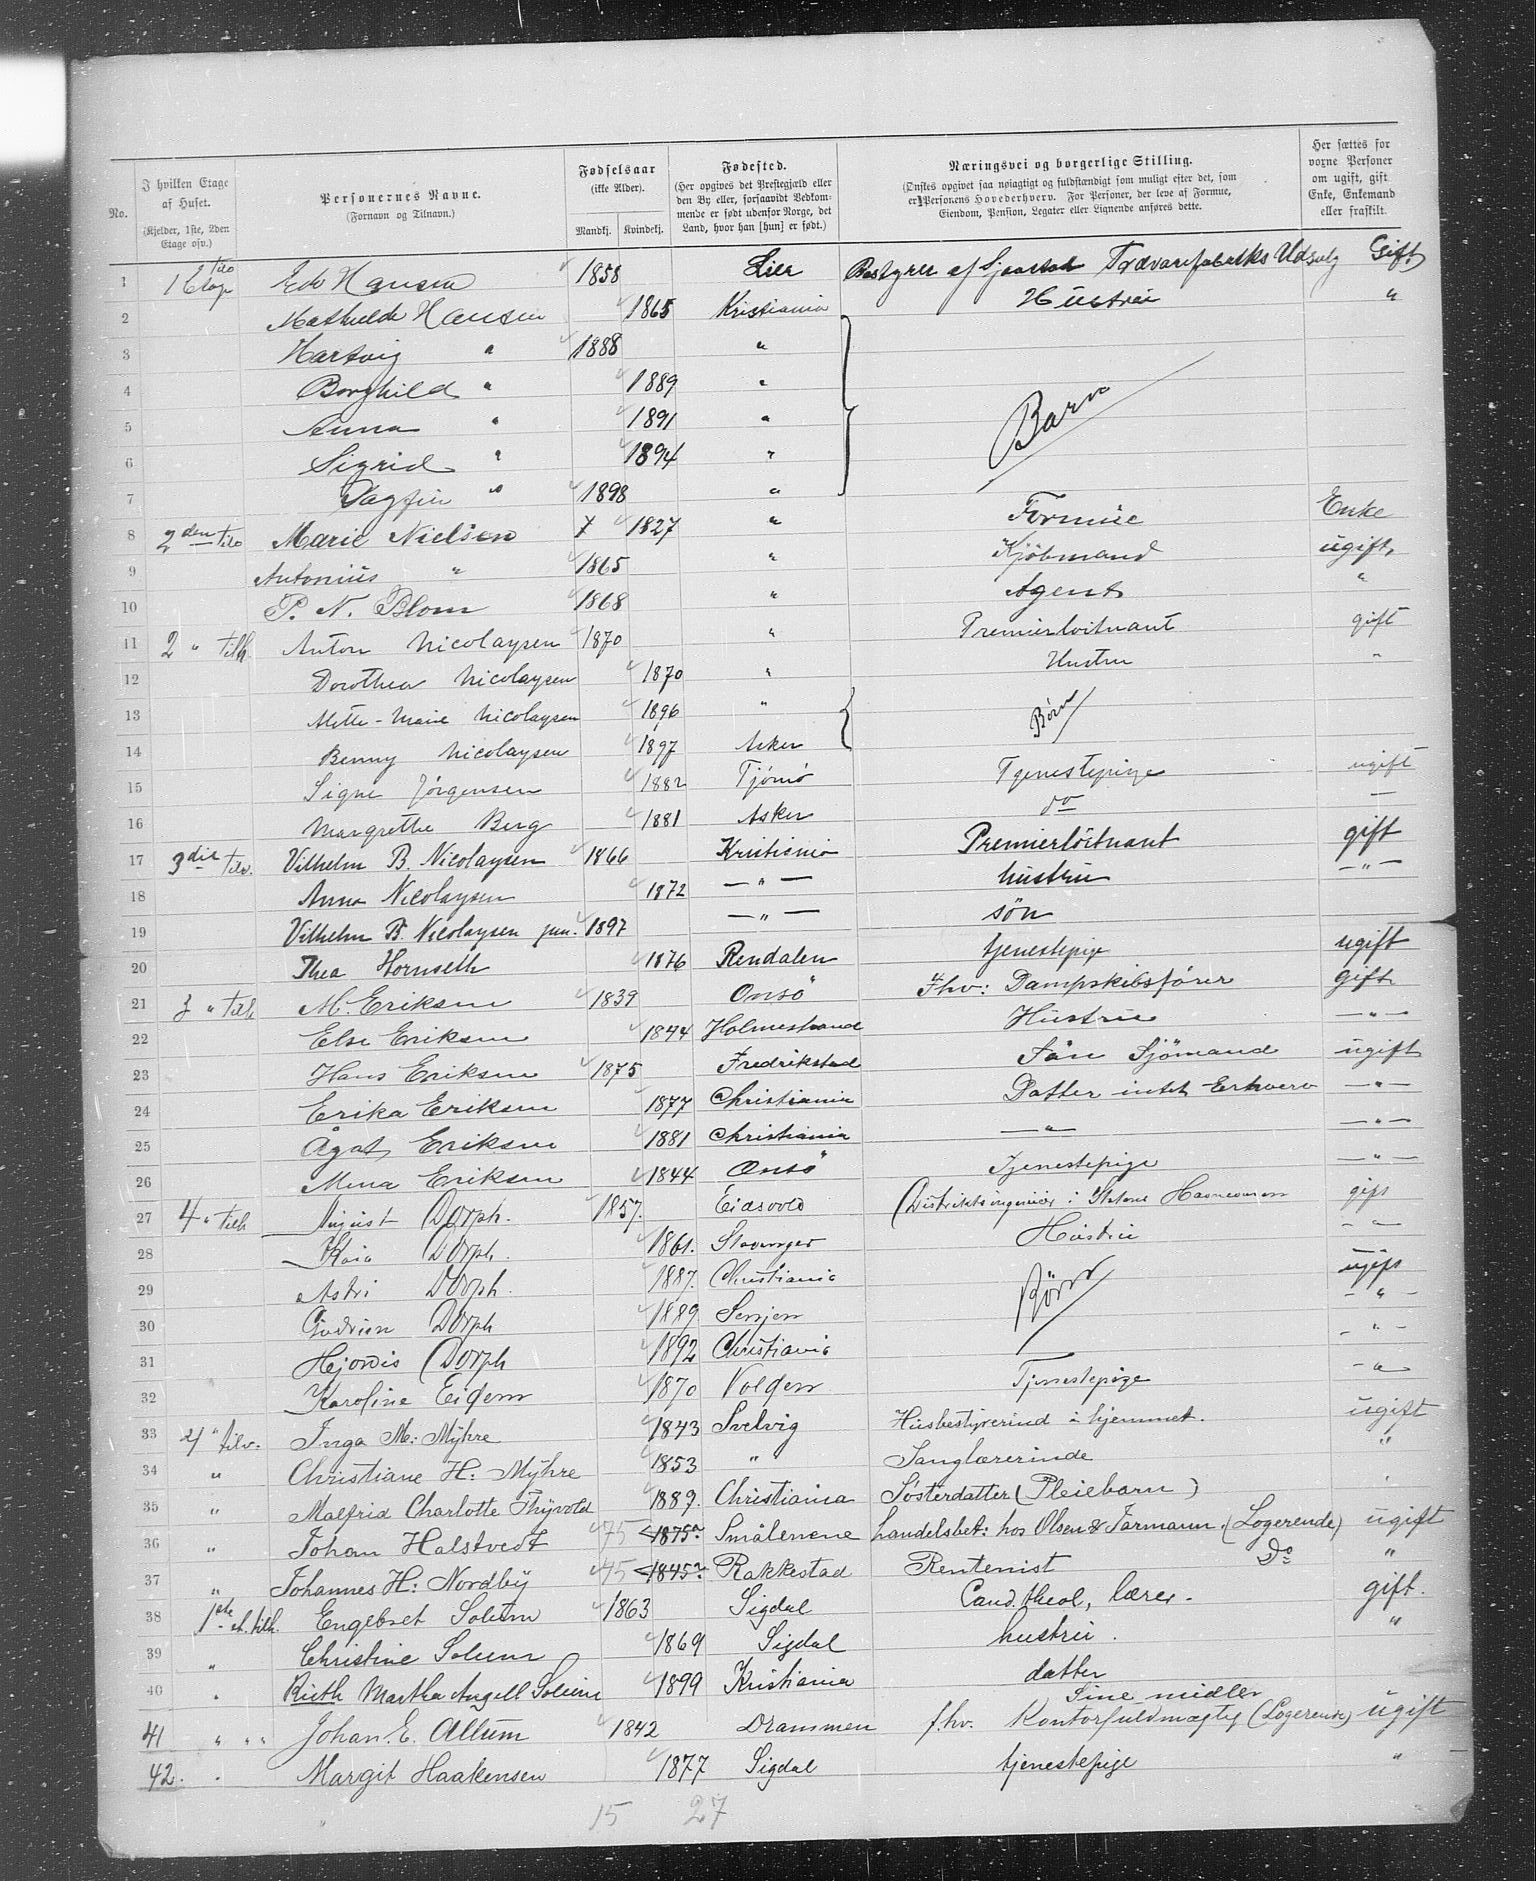 No.
I hvilken Etage af Huset. (Kjelder, 1ste, 2den Etage osv.)
Personernes Navne. (Fornavn og Tilnavn.)
Fødselsaar (ikke Alder). Mandkj. Kvindekj.
Fødested. (Her opgives det Prestegjæld eller den By eller, forsaavidt Vedkommende er født udenfor Norge, det Land, hvor han [hun] er født.)
Næringsvei og borgerlige Stilling. (Ønstes opgivet saa nøiagtigt og fuldstændigt som muligt efter det, som er Personens Hovederhverv. For Personer, der leve af Formue, Eiendom, Pension, Legater eller Lignende anføres dette.
Her sættes for voxne Personer om ugift, gift Enke, Enkemand eller fraskilt.
1 1 Etage tilv Edv Hansen 1858 Lier Bestyrer af Trævarefabriks Udsalg Gift
2 Mathilde Hansen 1865 Kristiania Hustru "
3 Hartvig " 1888 "
4 Borghild " 1889 "
5 Anna " 1891 " Barn
6 Sigrid " 1894 "
7 Dagfin " 1898 "
8 2den tilv Marie Nielsen x 1827 " Formue Enke
9 Antonius " 1865 " Kjöbmand ugift
10 P. N. Blom 1868 " Agent "
11 2 " tilh. Anton Nicolaysen 1870 " Premierløitnant gift
12 Dorothea Nicolaysen 1870 " Hustru "
13 Mette-Marie Nicolaysen 1896 " Børn
14 Benny Nicolaysen 1897 Asker
15 Signe Jørgensen 1882 Tjömö Tjenestepige ugift
16 Margrethe Berg 1881 Asker do —
17 3die tilv. Vilhelm B. Nicolaysen 1866 Kristiania Premierløitnant gift
18 Anna Nicolaysen 1872 — " — hustru — " —
19 Vilhelm B. Nicolaysen jun. 1897 — " — søn
20 Thea Hornseth 1876 Rendalen tjenestepige ugift
21 3 " tilh M. Eriksen 1839 Onsö Fhv: Dampskibsfører gift
22 Else Eriksen 1844 Holmestrand Hustru — " —
23 Hans Eriksen 1875 Fredrikstad Sön Sjömand ugift
24 Erika Eriksen 1877 Christiania Datter intet Erhverv — " —
25 Ågot Eriksen 1881 Christiania — " — — " —
26 Mina Eriksen 1844 Onsö Tjenestepige — " —
27 4 " tilh August Dorph. 1857. Eidsvold Distriktsingeniør i Statens gift
28 Kaia Dorph. 1861. Stavanger Hustru — " —
29 Astri Dorph. 1887. Christiania Börn ugift
30 Gudrun Dorph 1889 Senjen — " —
31 Hjordis Dorph 1892 Christiania — " —
32 Karoline Eidem 1870 Volden Tjenestepige — " —
33 4 " tilv. Inga M: Myhre 1843 Svelvig Husbestyrerind i hjemmet. ugift
34 " Christiane H: Myhre 1853 " Sanglærerinde "
35 " Malfrid Charlotte Thyvold 1889. Christiania Søsterdatter (Pleiebarn)
36 " Johan Halstvedt 75 1875 Smålenene handelsbet: hos Olsen & Tarmann. (Logerende) ugift
37 " Johannes H: Nordby 45 1845 Rakkestad Rentenist Do "
38 1ste et. tilh. Engebret Solum 1863 Sigdal Cand. theol, lærer. gift.
39 " Christine Solum 1869 Sigdal hustru. "
40 " Ruth Martha Angell Solum 1899 Kristiania datter
41 " " " Johan. E. Allum 1842 Drammen f.hv. Kontorfuldmægtig (Logerende) Sine midler ugift
42. " Margit Haakensen 1877 Sigdal tjenestepige "
15 27